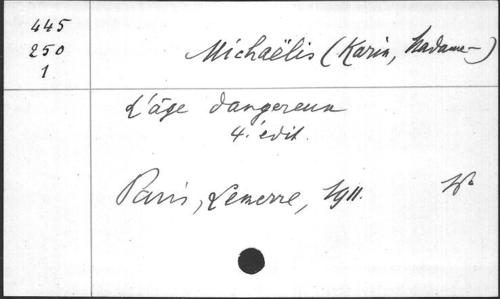 445
250
1
Michaëlis (Karin, Madame)
L'âge dangereux
4. édit.
Paris, Lemerre, 1911.